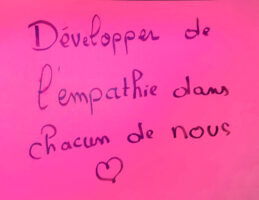 Développer de
l'empathie dans
chacun de nous